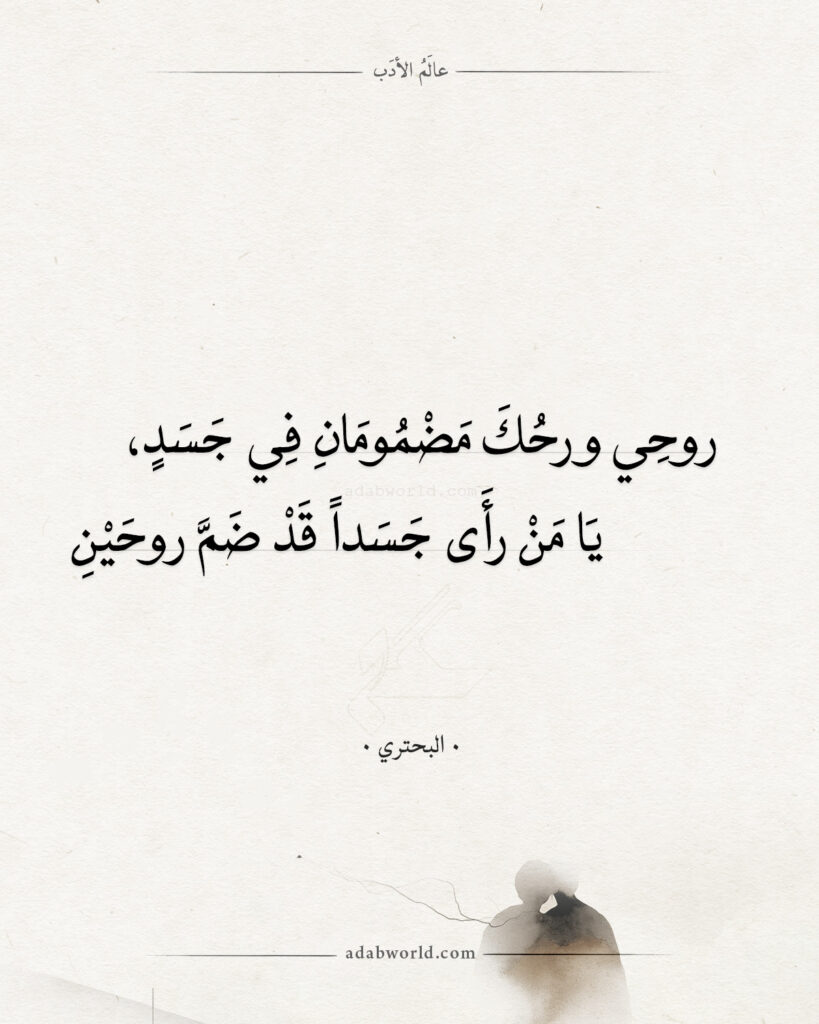 عالَمُ الأدَب
روحِي ورحُكَ مَضْمُومَانِ فِي جَسَدٍ،
adabworld.com
يَا مَنْ رأَى جَسَداً قَدْ ضَمَّ روحَيْنِ
• البحتري •
adabworld.com